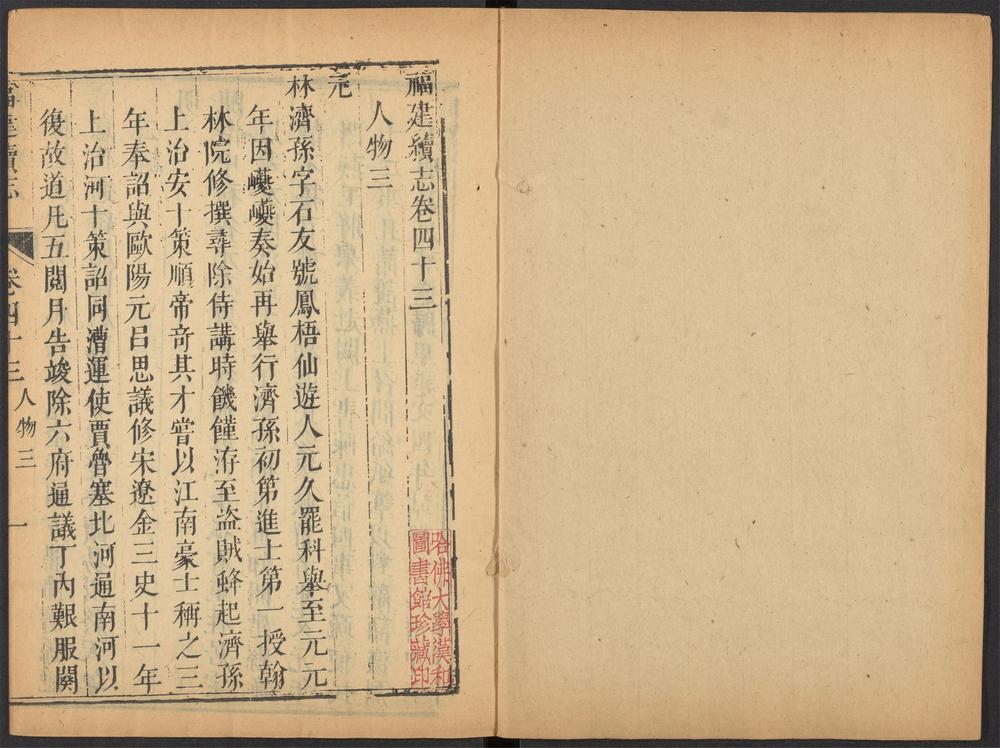 福建續志卷四十三
人物三
元
林濟孫字石友號鳳梧仙遊人元久罷科舉至元元
年因巙巙奏始再舉行濟孫初第進士第一授翰
林院修撰尋除侍講時饑饉洊至盜賊蜂起濟孫
上治安十策順帝奇其才嘗以江南豪士稱之三
年奉詔與歐陽元呂思議修宋遼金三史十一年
上治河十策詔同漕運使賈魯塞北河通南河以
復故道凡五閱月告竣除六府通議丁內艱服闋
福建續志
卷四十三
人物三
一
哈佛大學漢和
圖書館珍藏印